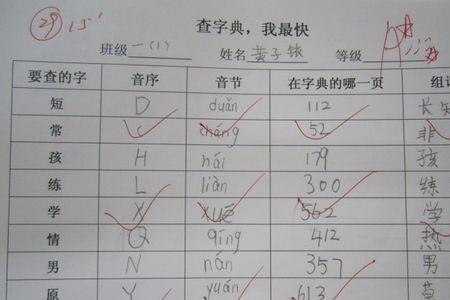 29
查字典，我最快
班级 一(1) 姓名 黄子 等级
要查的字 音序 音节 在字典的哪一页 组
短 D duǎn 112 长短
常 C cháng 52 非
孩 H hái 179 孩
练 L liàn 300 练
学 X xué 562 学
情 Q qíng 412 热
男 N nán 357 男
原 Y yuán 613 草